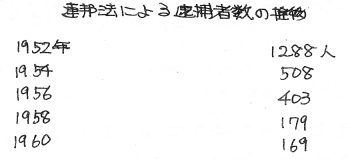 連邦法による逮捕者数の推移
1952年 1288人
1954 508
1956 403
1958 179
1960 169